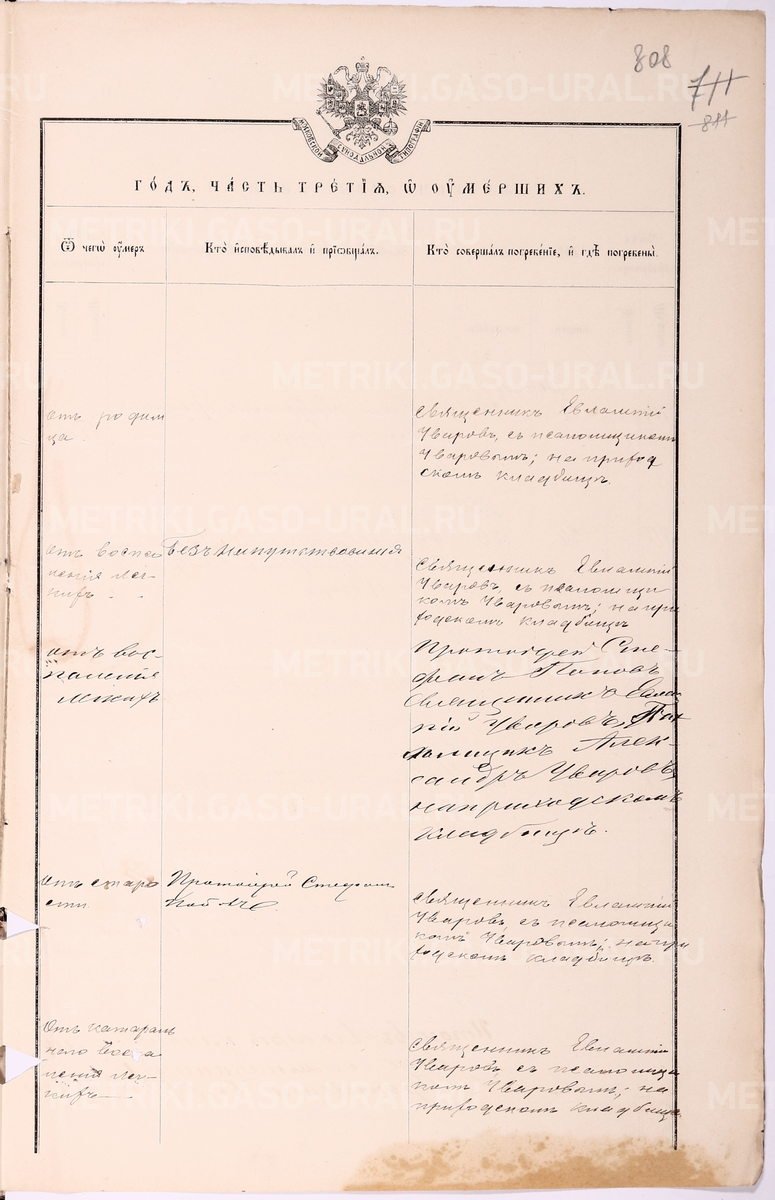 808
711
811
МОСКОВСКОЙ СѴНОДАЛЬНОЙ ТИПОГРАФІИ
ГО́ДЪ, ЧА́СТЬ ТРЕ́ТІѦ, Ѿ ОУМЕ́РШИХЪ.
Ѿ чегѡ̀ оу́меръ
Кто̀ и҆сповѣ́дывалъ и҆ прїобща́лъ.
Кто̀ соверша́лъ погребе́нїе, и҆ гдѣ̀ погребены̀.
отъ родим
ца.
Священникъ Евлампій
Уваровъ, съ псаломщикомъ
Уваровымъ; на приход
скомъ кладбищѣ.
отъ воспа
ленія лег-
кихъ
Безъ напутствованія
Священникъ Евлампій
Уваровъ, съ псаломщи
комъ Уваровымъ; на при
ходскомъ кладбищѣ
отъ вос-
паленія
легкихъ
Протоіерей Сте-
фанъ Поповъ
Священникъ Евлам
пій Уваровъ, Пса
ломщикъ Алек-
сандръ Уваровъ
на приходскомъ
кладбищѣ.
отъ старо
сти
Протоіерей Стефанъ
Священникъ Евлампій
Уваровъ, съ псаломщи
комъ Уваровымъ; на при
ходскомъ кладбищѣ.
Отъ катарал
наго воспа
ленія лег-
кихъ
Священникъ Евлампій
Уваровъ, съ псаломщи
комъ Уваровымъ; на
приходскомъ кладбищѣ
METRIKI.GASO-URAL.RU